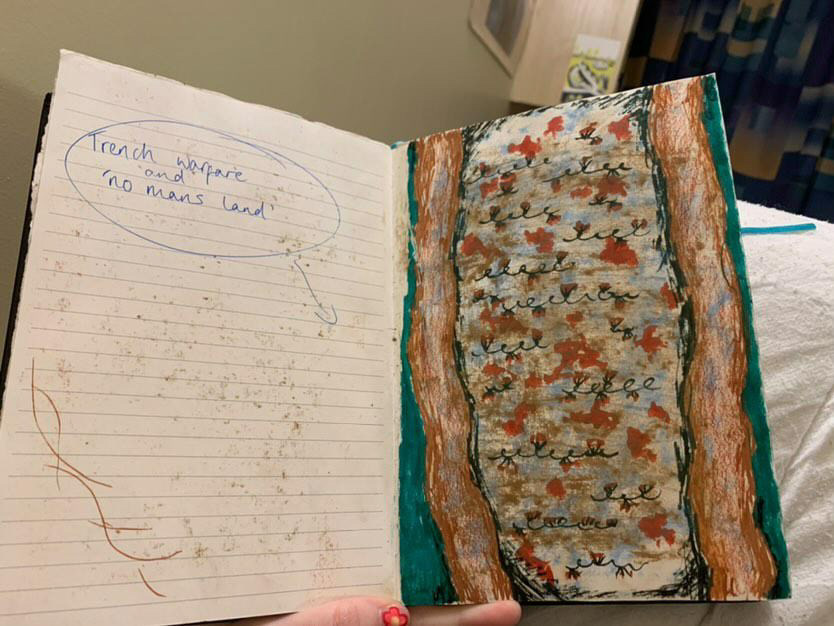 Trench warfare
and
'no mans land'